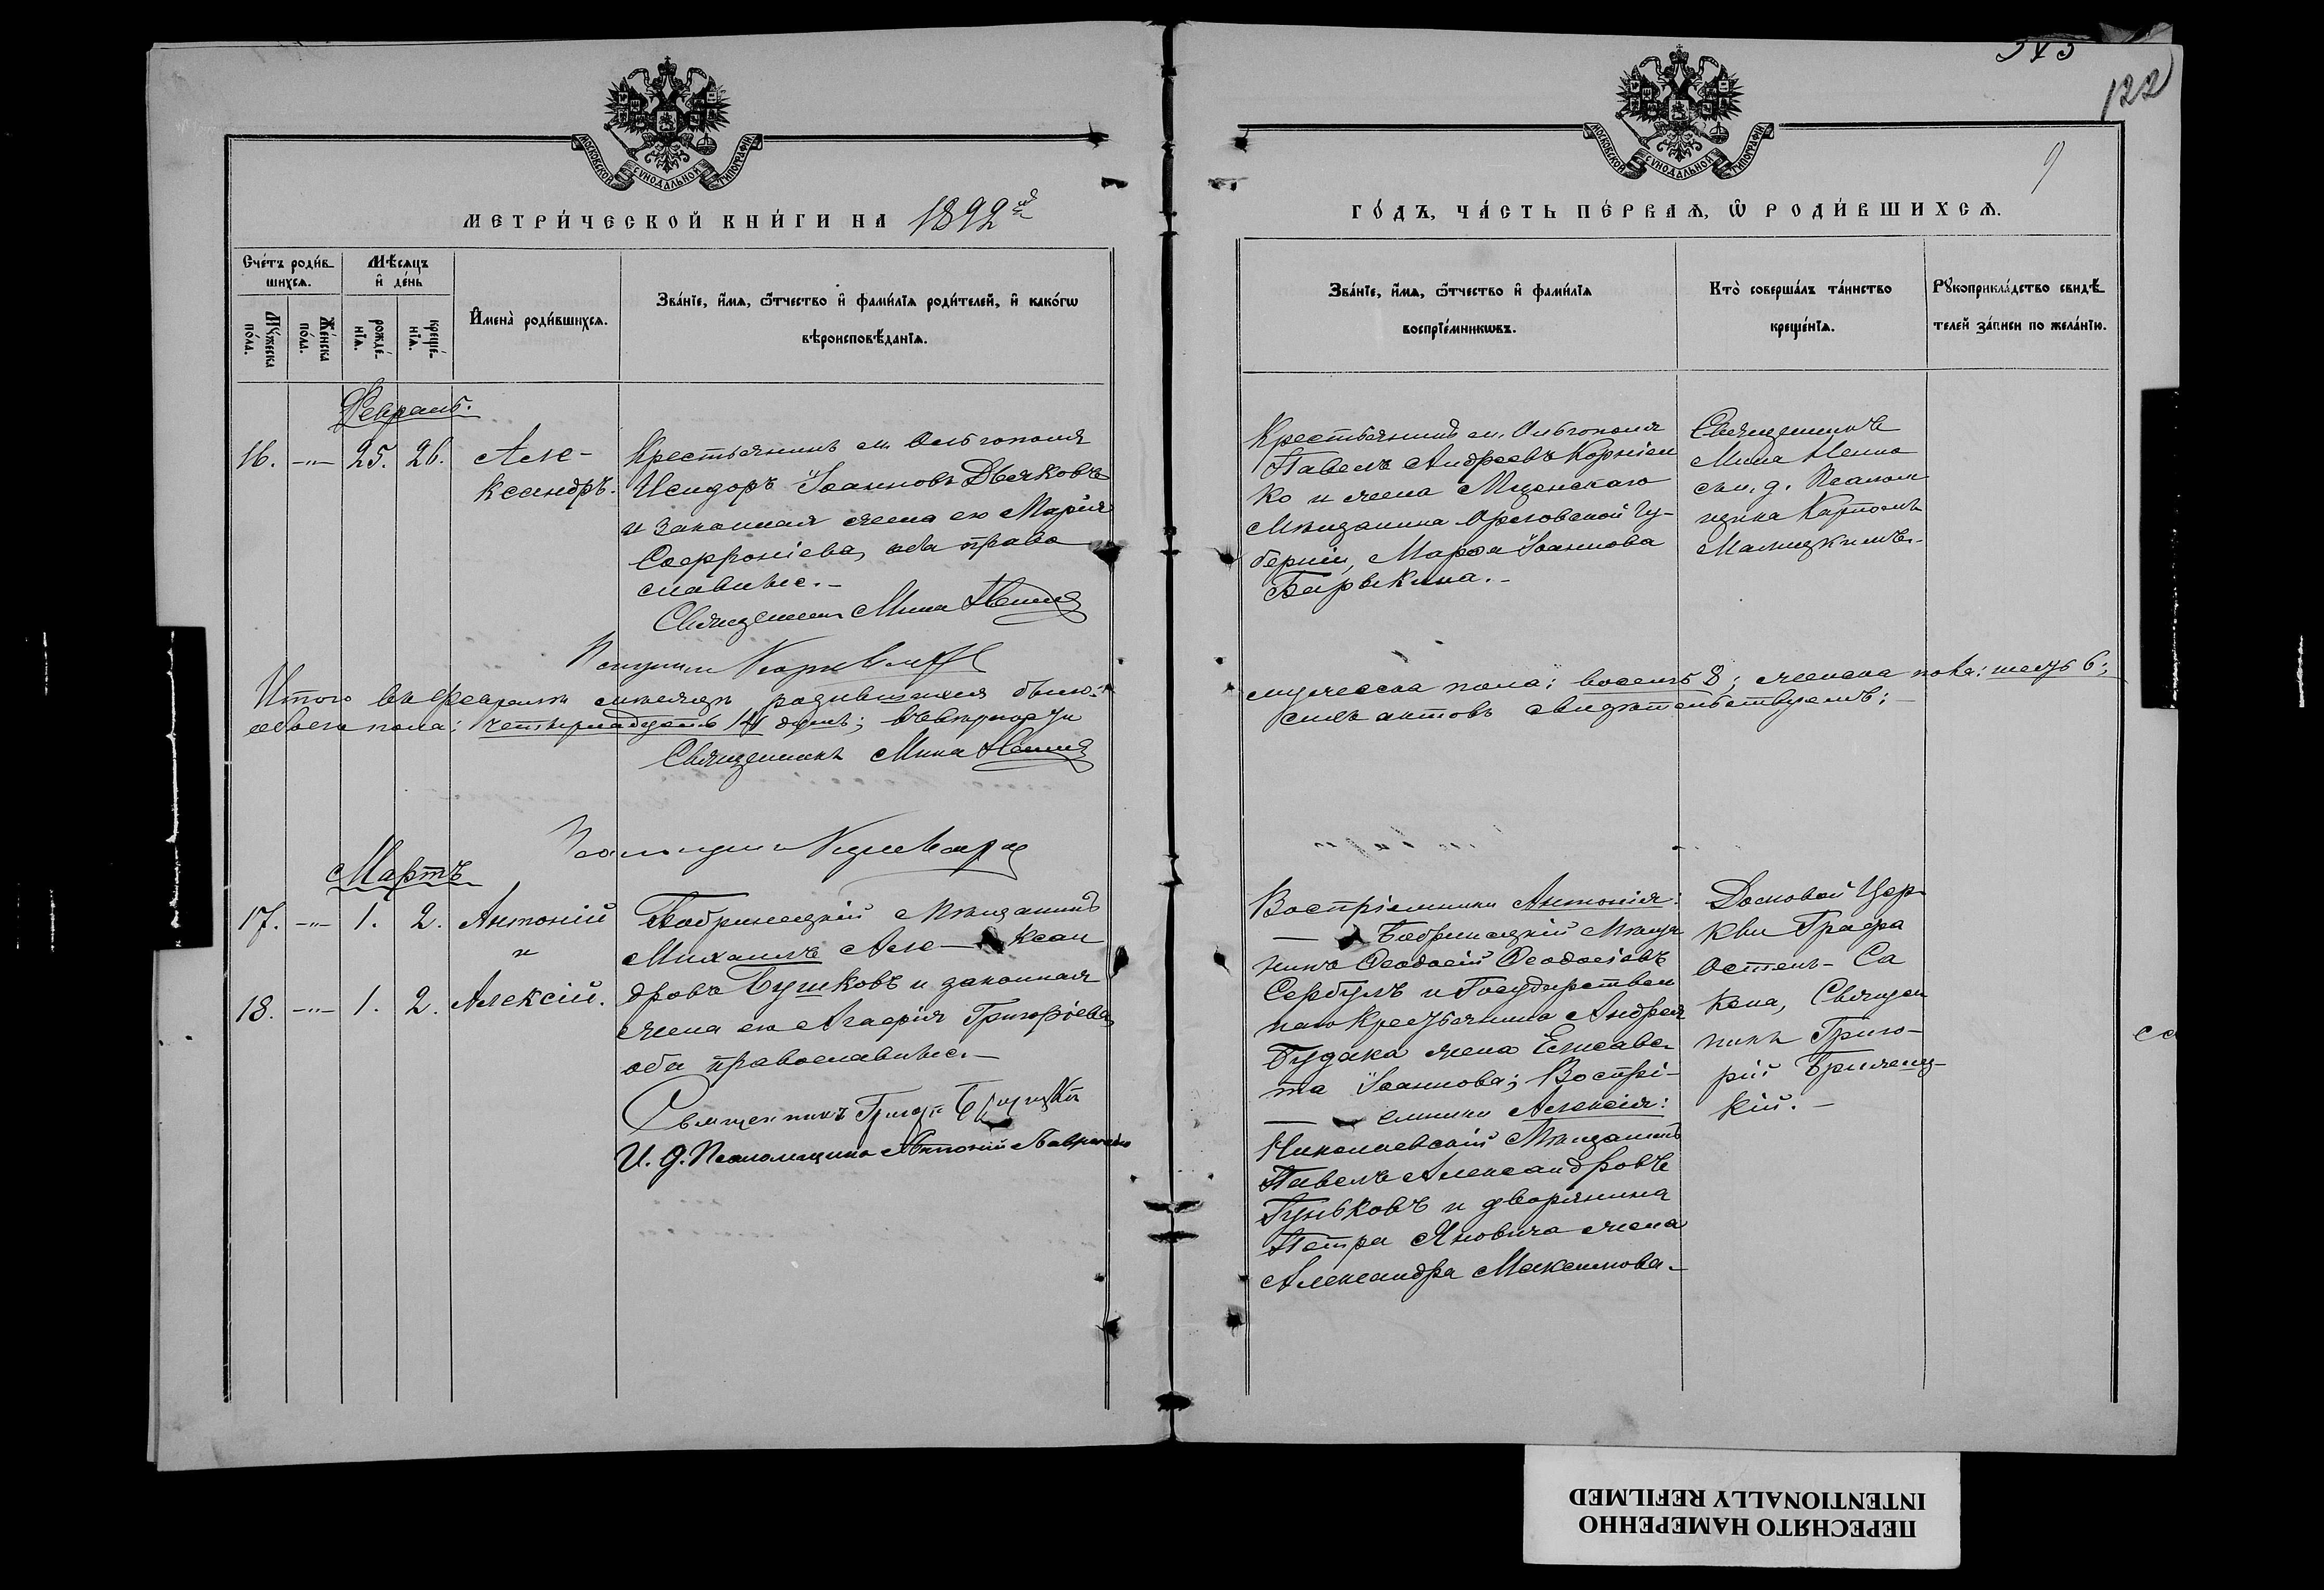 343
122
9
МОСКОВСКОЙ СѴНОДАЛЬНОЙ ТИПОГРАФІИ
МОСКОВСКОЙ СѴНОДАЛЬНОЙ ТИПОГРАФІИ
МЕТРИ́ЧЕСКОЙ КНИ́ГИ НА 1892й
ГО́ДЪ, ЧА́СТЬ ПЕ́РВАѦ, Ѡ҆ РОДИ́ВШИХСѦ.
Счетъ роди́в-
шихсѧ.
Мꙋ́жеска по́ла.
Же́нска по́ла.
Мѣ́сѧцъ
и҆ де́нь
рожде́-
нїѧ.
креще́-
нїѧ.
И҆мена̀ роди́вшихсѧ.
Зва́нїе, и҆́мѧ, ѻ҆́тчество и҆ фами́лїѧ роди́телей, и҆ како́гѡ
вѣроисповѣ́данїѧ.
Зва́нїе, и҆́мѧ, ѻ҆́тчество и҆ фами́лїѧ
воспрїе́мникѡвъ.
Кто̀ соверша́лъ та́инство
креще́нїѧ.
Рꙋкоприкла́дство свидѣ́-
телей за́писи по жела́нїю.
Февраль.
16. -"- 25. 26. Але-
ксандръ.
Крестьянинъ м. Ольгополя
Исидоръ Іоанновъ Дьячковъ
и законная жена его Марія
Софроніева, оба право
славные.-
Священникъ Мина
Крестьянинъ м. Ольгополя
Павелъ Андреевъ Корніен
ко и жена Мценскаго
Мѣщанина Орловской Гу-
берніи, Марѳа Іоаннова
Барыкина.-
Священникъ
Мина
съ и. д. Псалом
щика Карпомъ
Итого въ Февралѣ мѣсяцѣ родившихся было:
мужеска пола: восемь 8; женска пола: шесть 6;
обоего пола: четырнадцать 14 душъ; въ вѣрности
сихъ актовъ свидѣтельствуемъ:-
Священникъ Мина
Псаломщикъ
Мартъ
17. -"- 1. 2. Антоній
и
18. -"- 1. 2. Алексій.
Бобринецкій Мѣщанинъ
Михаилъ Але- ксан
дровъ Гуньковъ и законная
жена его Агафія Григоріева,
оба православные.-
Священникъ Григорій
И. д. Псаломщика Антоній
Воспріемники Антонія:
- Бобринецкій Мѣща
нинъ Ѳеодосій Ѳеодосіевъ
Сербулъ и Государствен
наго Крестьянина Андрея
Будака жена Елисаве
та Іоаннова; Воспрі-
- емники Алексія:
Николаевскій Мѣщанинъ
Павелъ Александровъ
Гуньковъ и дворянина
Петра Яновича жена
Александра Максимова.-
Домовой Цер-
кви Графа
Остенъ-Са
кена, Священ
никъ Григо-
рій
кій.-
ПЕРЕСНЯТО НАМЕРЕННО
INTENTIONALLY REFILMED